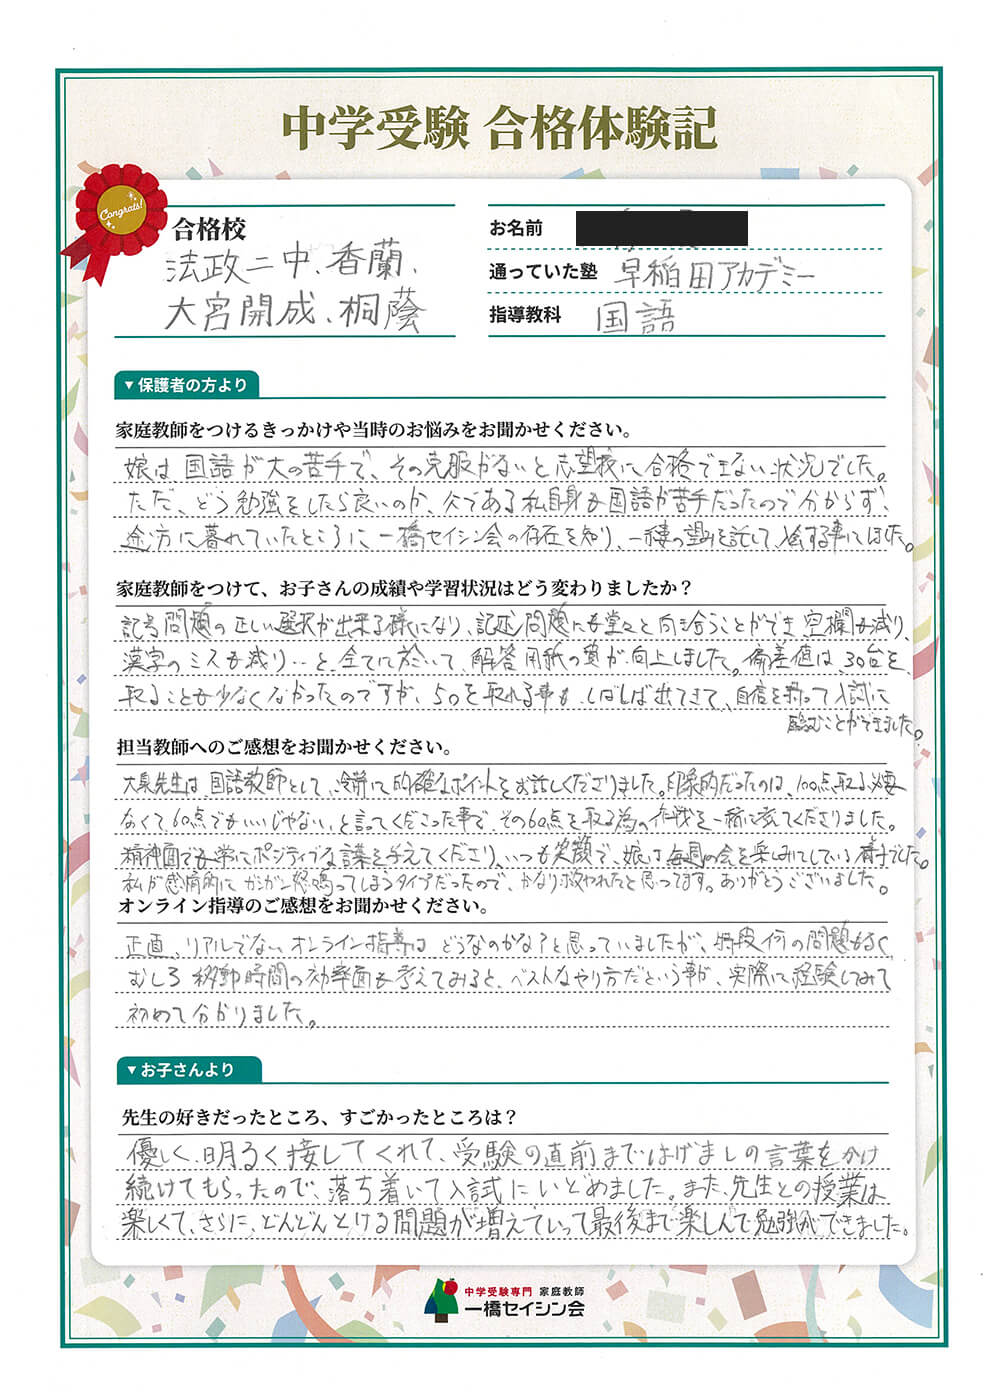 中学受験 合格体験記
Congrats!
合格校
法政二中、香蘭、
大宮開成、桐蔭
お名前
通っていた塾 早稲田アカデミー
指導教科 国語
▼保護者の方より
家庭教師をつけるきっかけや当時のお悩みをお聞かせください。
娘は国語が大の苦手で、その克服がないと志望校に合格できない状況でした。
ただ、どう勉強をしたら良いのか、父である私自身も国語が苦手だったので分からず、
途方に暮れていたところに、一橋セイシン会の存在を知り、一縷の望みを託して、入会する事にしました。
家庭教師をつけて、お子さんの成績や学習状況はどう変わりましたか？
記号問題の正しい選択が出来る様になり、記述問題にも堂々と向き合うことができ空欄も減り、
漢字のミスも減り‥と、全てに於いて、解答用紙の質が向上しました。偏差値は30台を
取ることも少なくなかったのですが、50を取れる事も、しばしば出てきて、自信を持って入試に
臨むことができました。
担当教師へのご感想をお聞かせください。
先生は、国語教師として、冷静に的確なポイントをお話しくださりました。印象的だったのは、100点取る必要
なくて、60点でもいいじゃない、と言ってくださった事で、その60点を取る為の作戦を一緒に考えてくださりました。
精神面でも常にポジティブな言葉を与えてくださり、いつも笑顔で、娘は毎週の会を楽しみにしている様子でした。
私が感情的にガンガン怒鳴ってしまうタイプだったので、かなり救われたと思ってます。ありがとうございました。
オンライン指導のご感想をお聞かせください。
正直、リアルでないオンライン指導はどうなのかな？と思っていましたが、特段何の問題もなく
むしろ移動時間の効率面も考えてみると、ベストなやり方だという事が、実際に経験してみて
初めて分かりました。
▼お子さんより
先生の好きだったところ、すごかったところは？
優しく、明るく接してくれて、受験の直前まではげましの言葉をかけ
続けてもらったので、落ち着いて入試にいどめました。また、先生との授業は
楽しくて、さらに、どんどんとける問題が増えていって最後まで楽しんで勉強ができました。
中学受験専門 家庭教師
一橋セイシン会